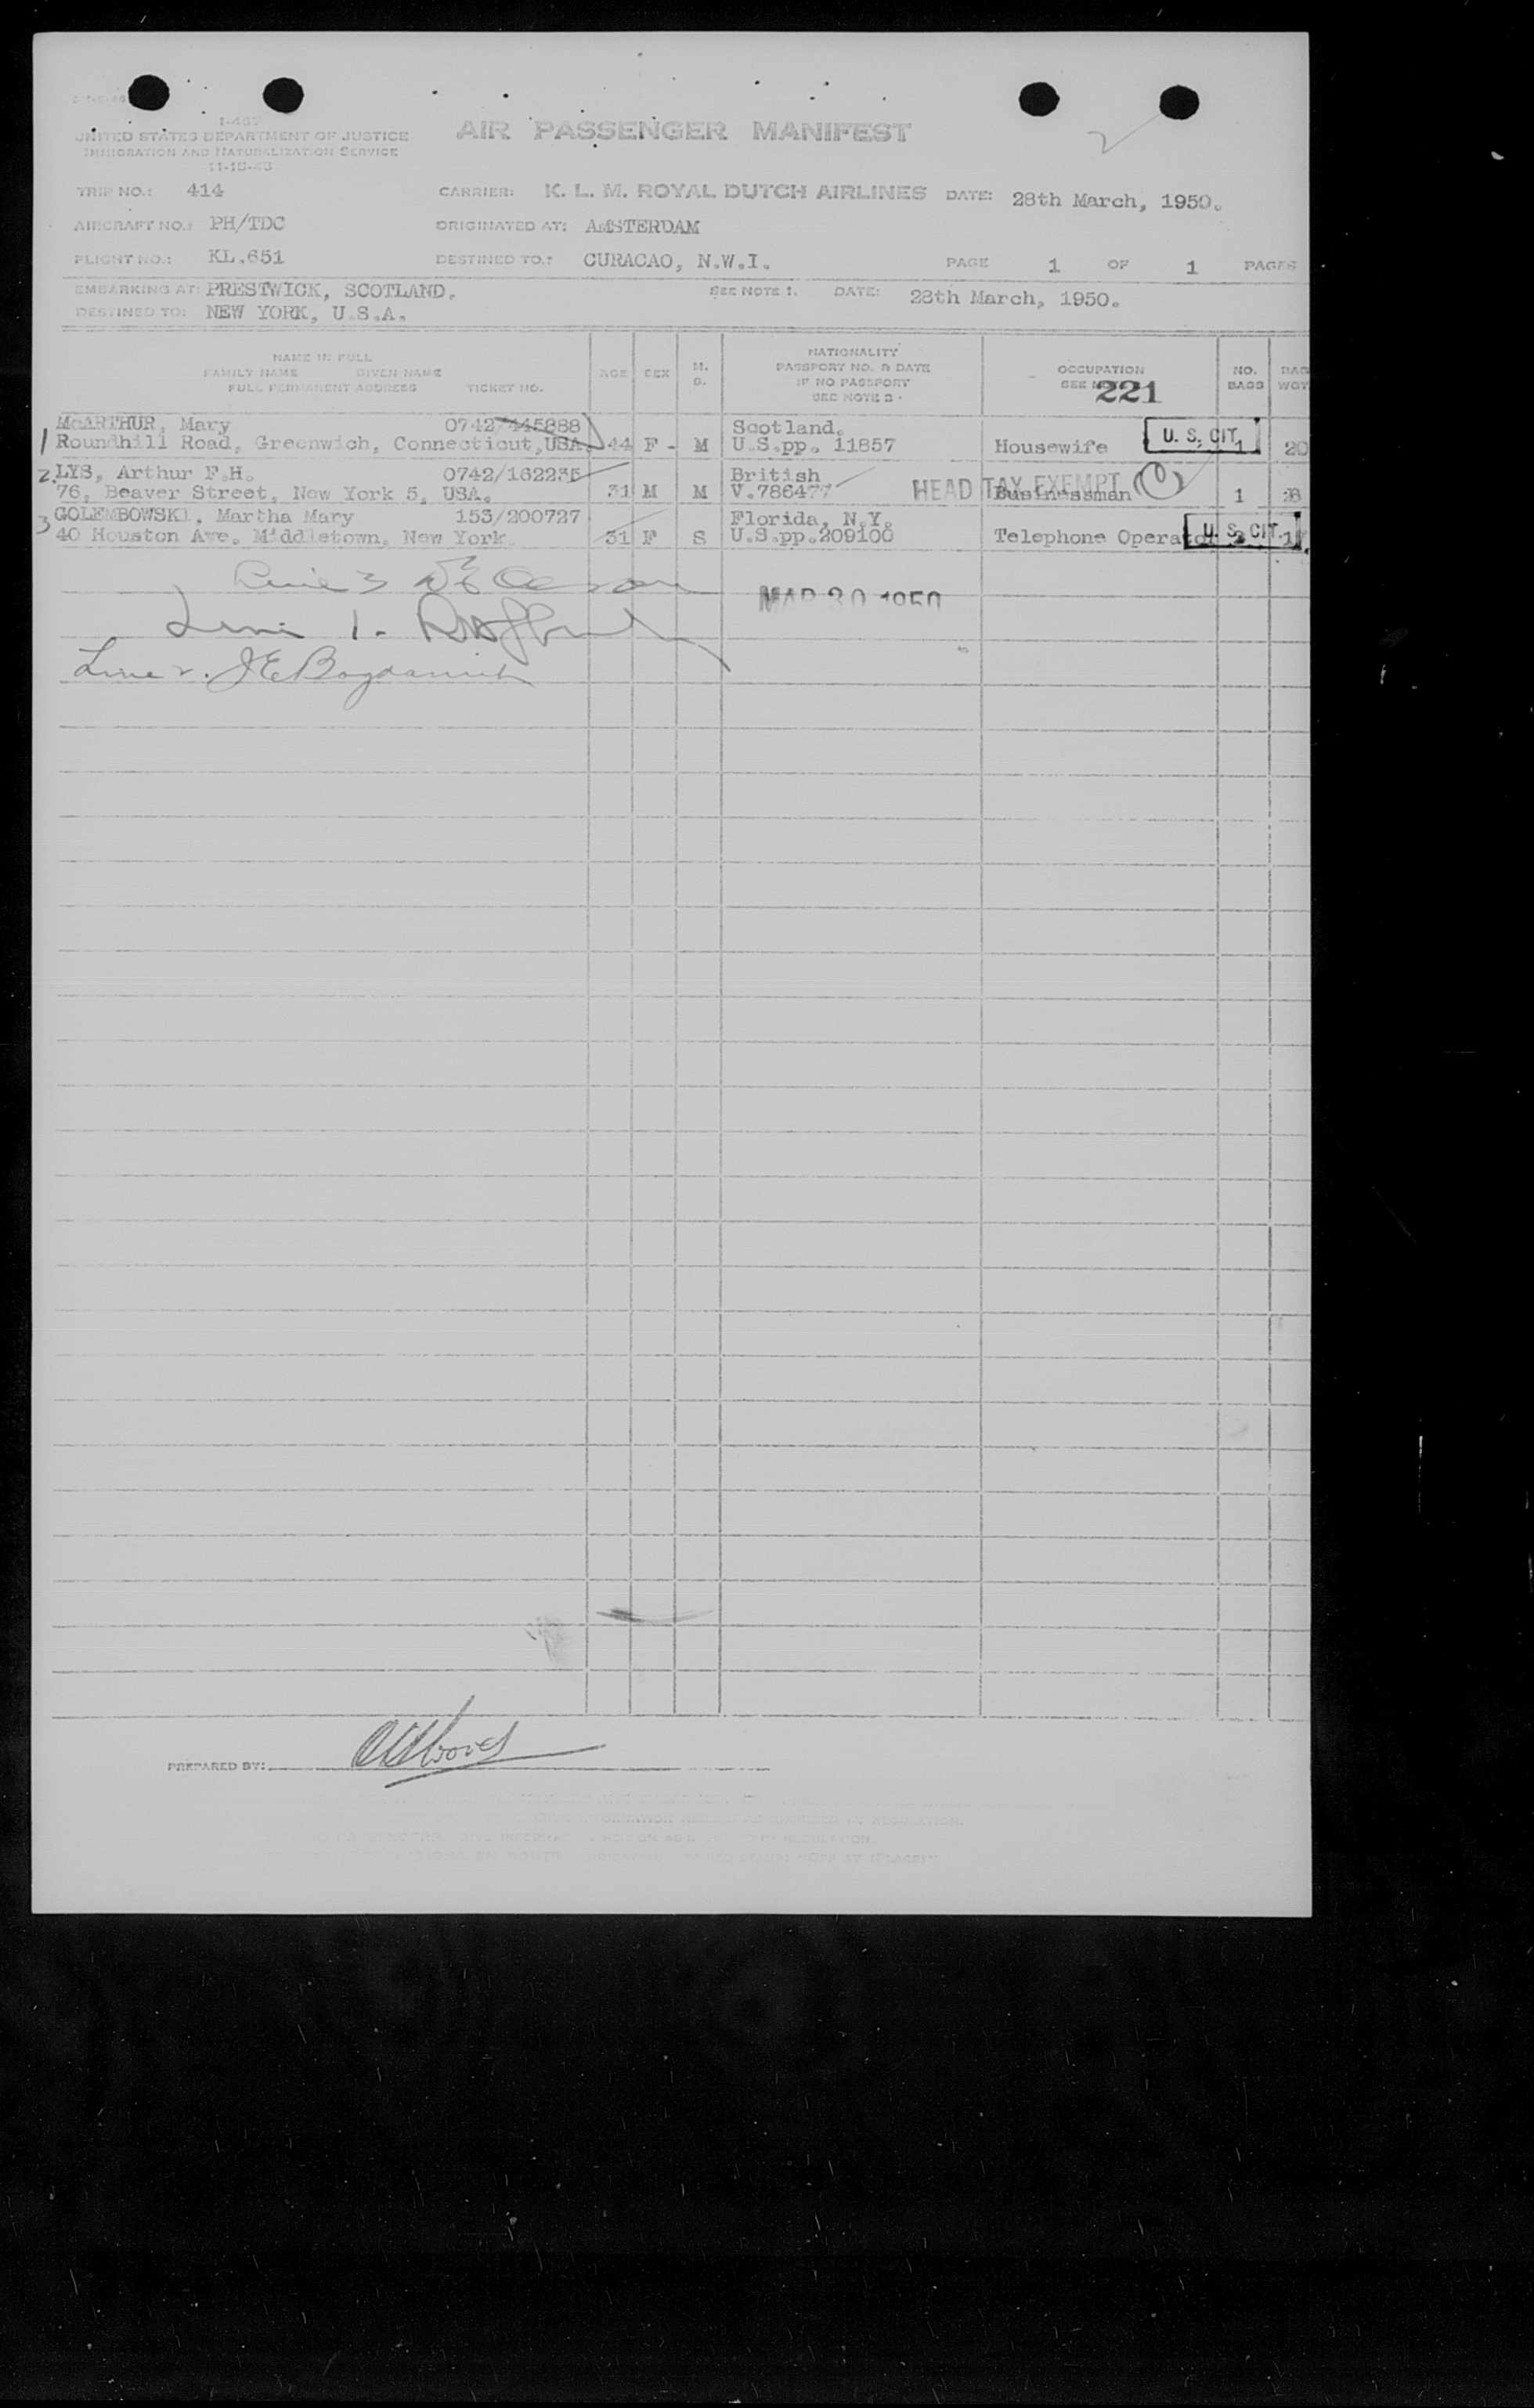 UNITED STATES DEPARTMENT OF JUSTICE
IMMIGRATION AND NATURALIZATION SERVICE
AIR PASSENGER MANIFEST
TRIP NO.: 414 CARRIER: K. L. M. ROYAL DUTCH AIRLINES DATE: 28th March, 1950.
AIRCRAFT NO.: PH/TDC ORIGINATED AT: AMSTERDAM
FLIGHT NO.: KL.651 DESTINED TO.: CURACAO, N.W.I. PAGE 1 OF 1 PAGES
EMBARKING AT: PRESTWICK, SCOTLAND. SEE NOTE 1. DATE: 28th March, 1950.
DESTINED TO: NEW YORK, U.S.A.
NAME IN FULL
FAMILY NAME GIVEN NAME
FULL PERMANENT ADDRESS TICKET NO.
AGE SEX M. S.
NATIONALITY
PASSPORT NO. & DATE
IF NO PASSPORT
SEE NOTE 2.
OCCUPATION
SEE
221
NO. BAGS
BAG WGT
1 McARTHUR, Mary 0742/445888 Scotland.
Roundhill Road, Greenwich, Connecticut, USA. 44 F - M U.S.pp. 11857 Housewife U. S. CIT. 1 20
2. LYS, Arthur F.H. 0742/162235 British
76, Beaver Street, New York 5, USA. 31 M M V.786477 HEAD TAX EXEMPT Businessman 1
3 GOLEMBOWSKI, Martha Mary 153/200727 Florida, N.Y.
40 Houston Ave. Middletown, New York. 31 F S U.S.pp.209100 Telephone Operator U. S. CIT.
Line 3
MAR 30 1950
Line 1.
Line 2. J E Bogdanich
PREPARED BY: